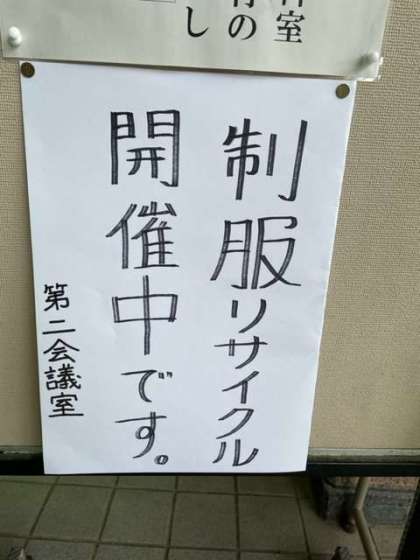 制服リサイクル
開催中です。
第二会議室
室
の
し